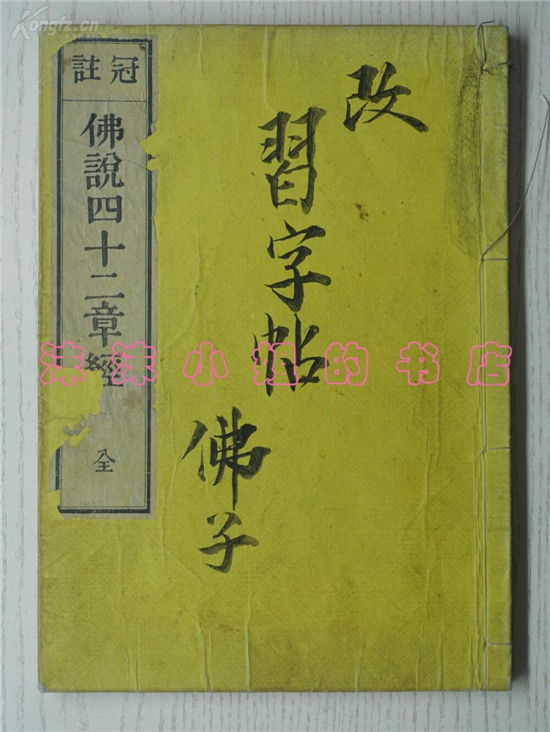 Kongfz.cn
改
習字帖
佛子
冠註
佛說四十二章經
全
沫沫小妞的书店